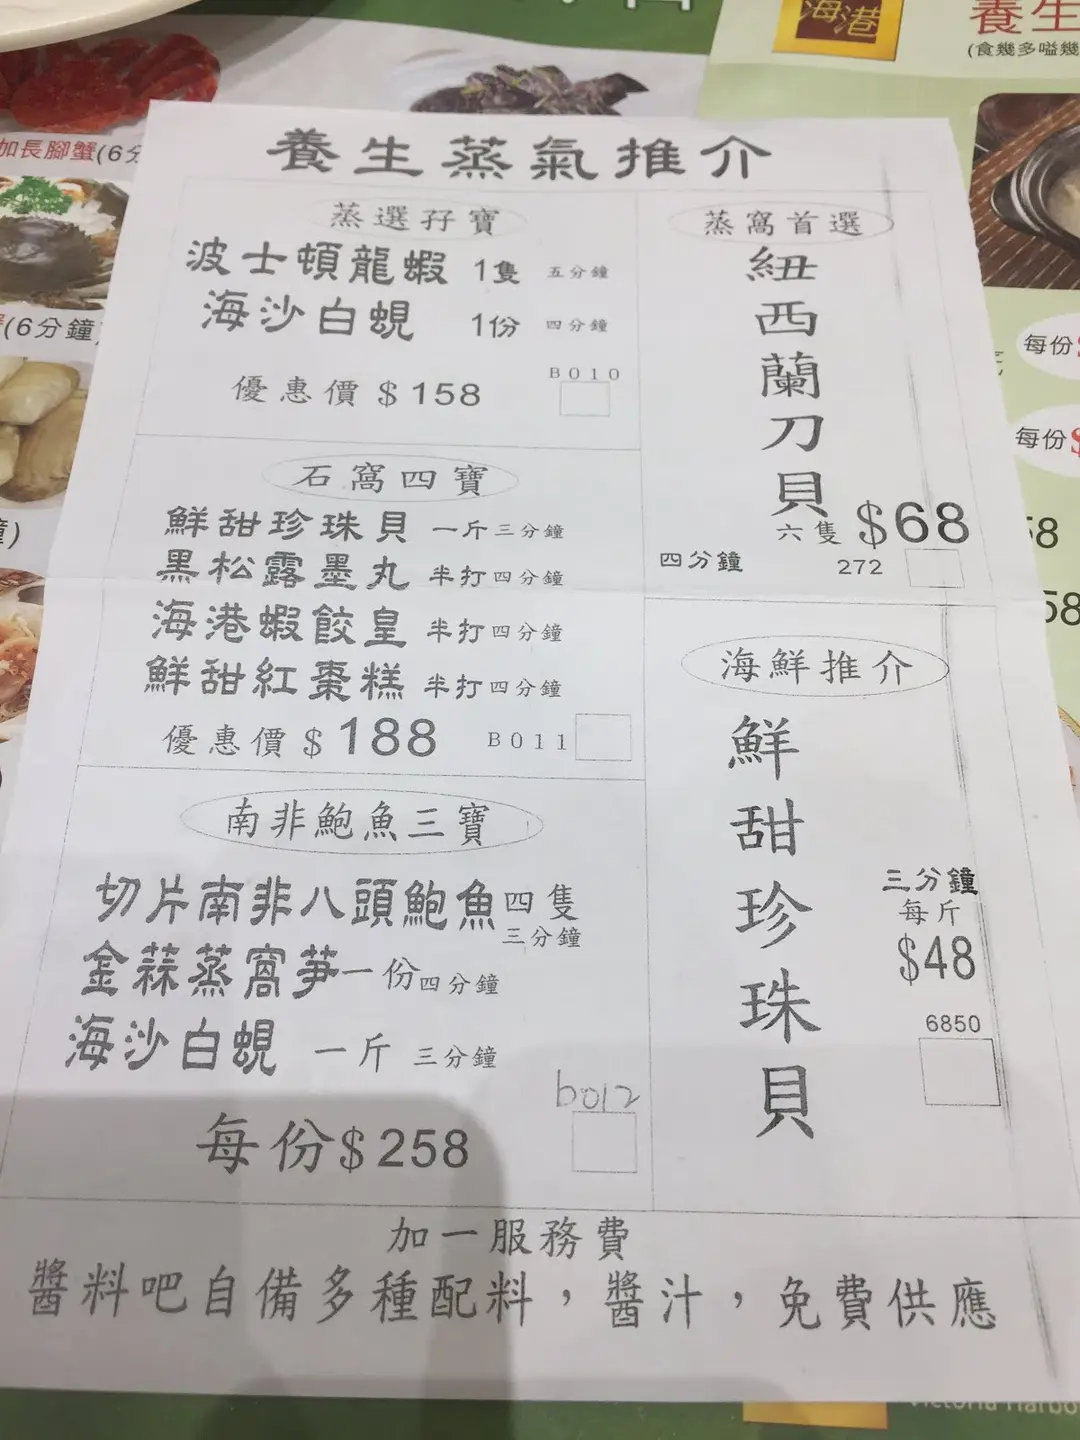 海港
養生
(食幾多嗌幾
加長腳蟹(6分
(6分鐘)
每份
每份
58
養生蒸氣推介
蒸選孖寶
波士頓龍蝦 1隻 五分鐘
海沙白蜆 1份 四分鐘
B010
優惠價 $158
石窩四寶
鮮甜珍珠貝 一斤 三分鐘
黑松露墨丸 半打 四分鐘
海港蝦餃皇 半打 四分鐘
鮮甜紅棗糕 半打 四分鐘
優惠價 $188 B011
南非鮑魚三寶
切片南非八頭鮑魚 四隻
三分鐘
金蒜蒸窩笋 一份 四分鐘
海沙白蜆 一斤 三分鐘
b012
每份$258
蒸窩首選
紐西蘭刀貝
六隻 $68
四分鐘 272
海鮮推介
鮮甜珍珠貝
三分鐘
每斤
$48
6850
加一服務費
醬料吧自備多種配料，醬汁，免費供應
Victoria Harbo